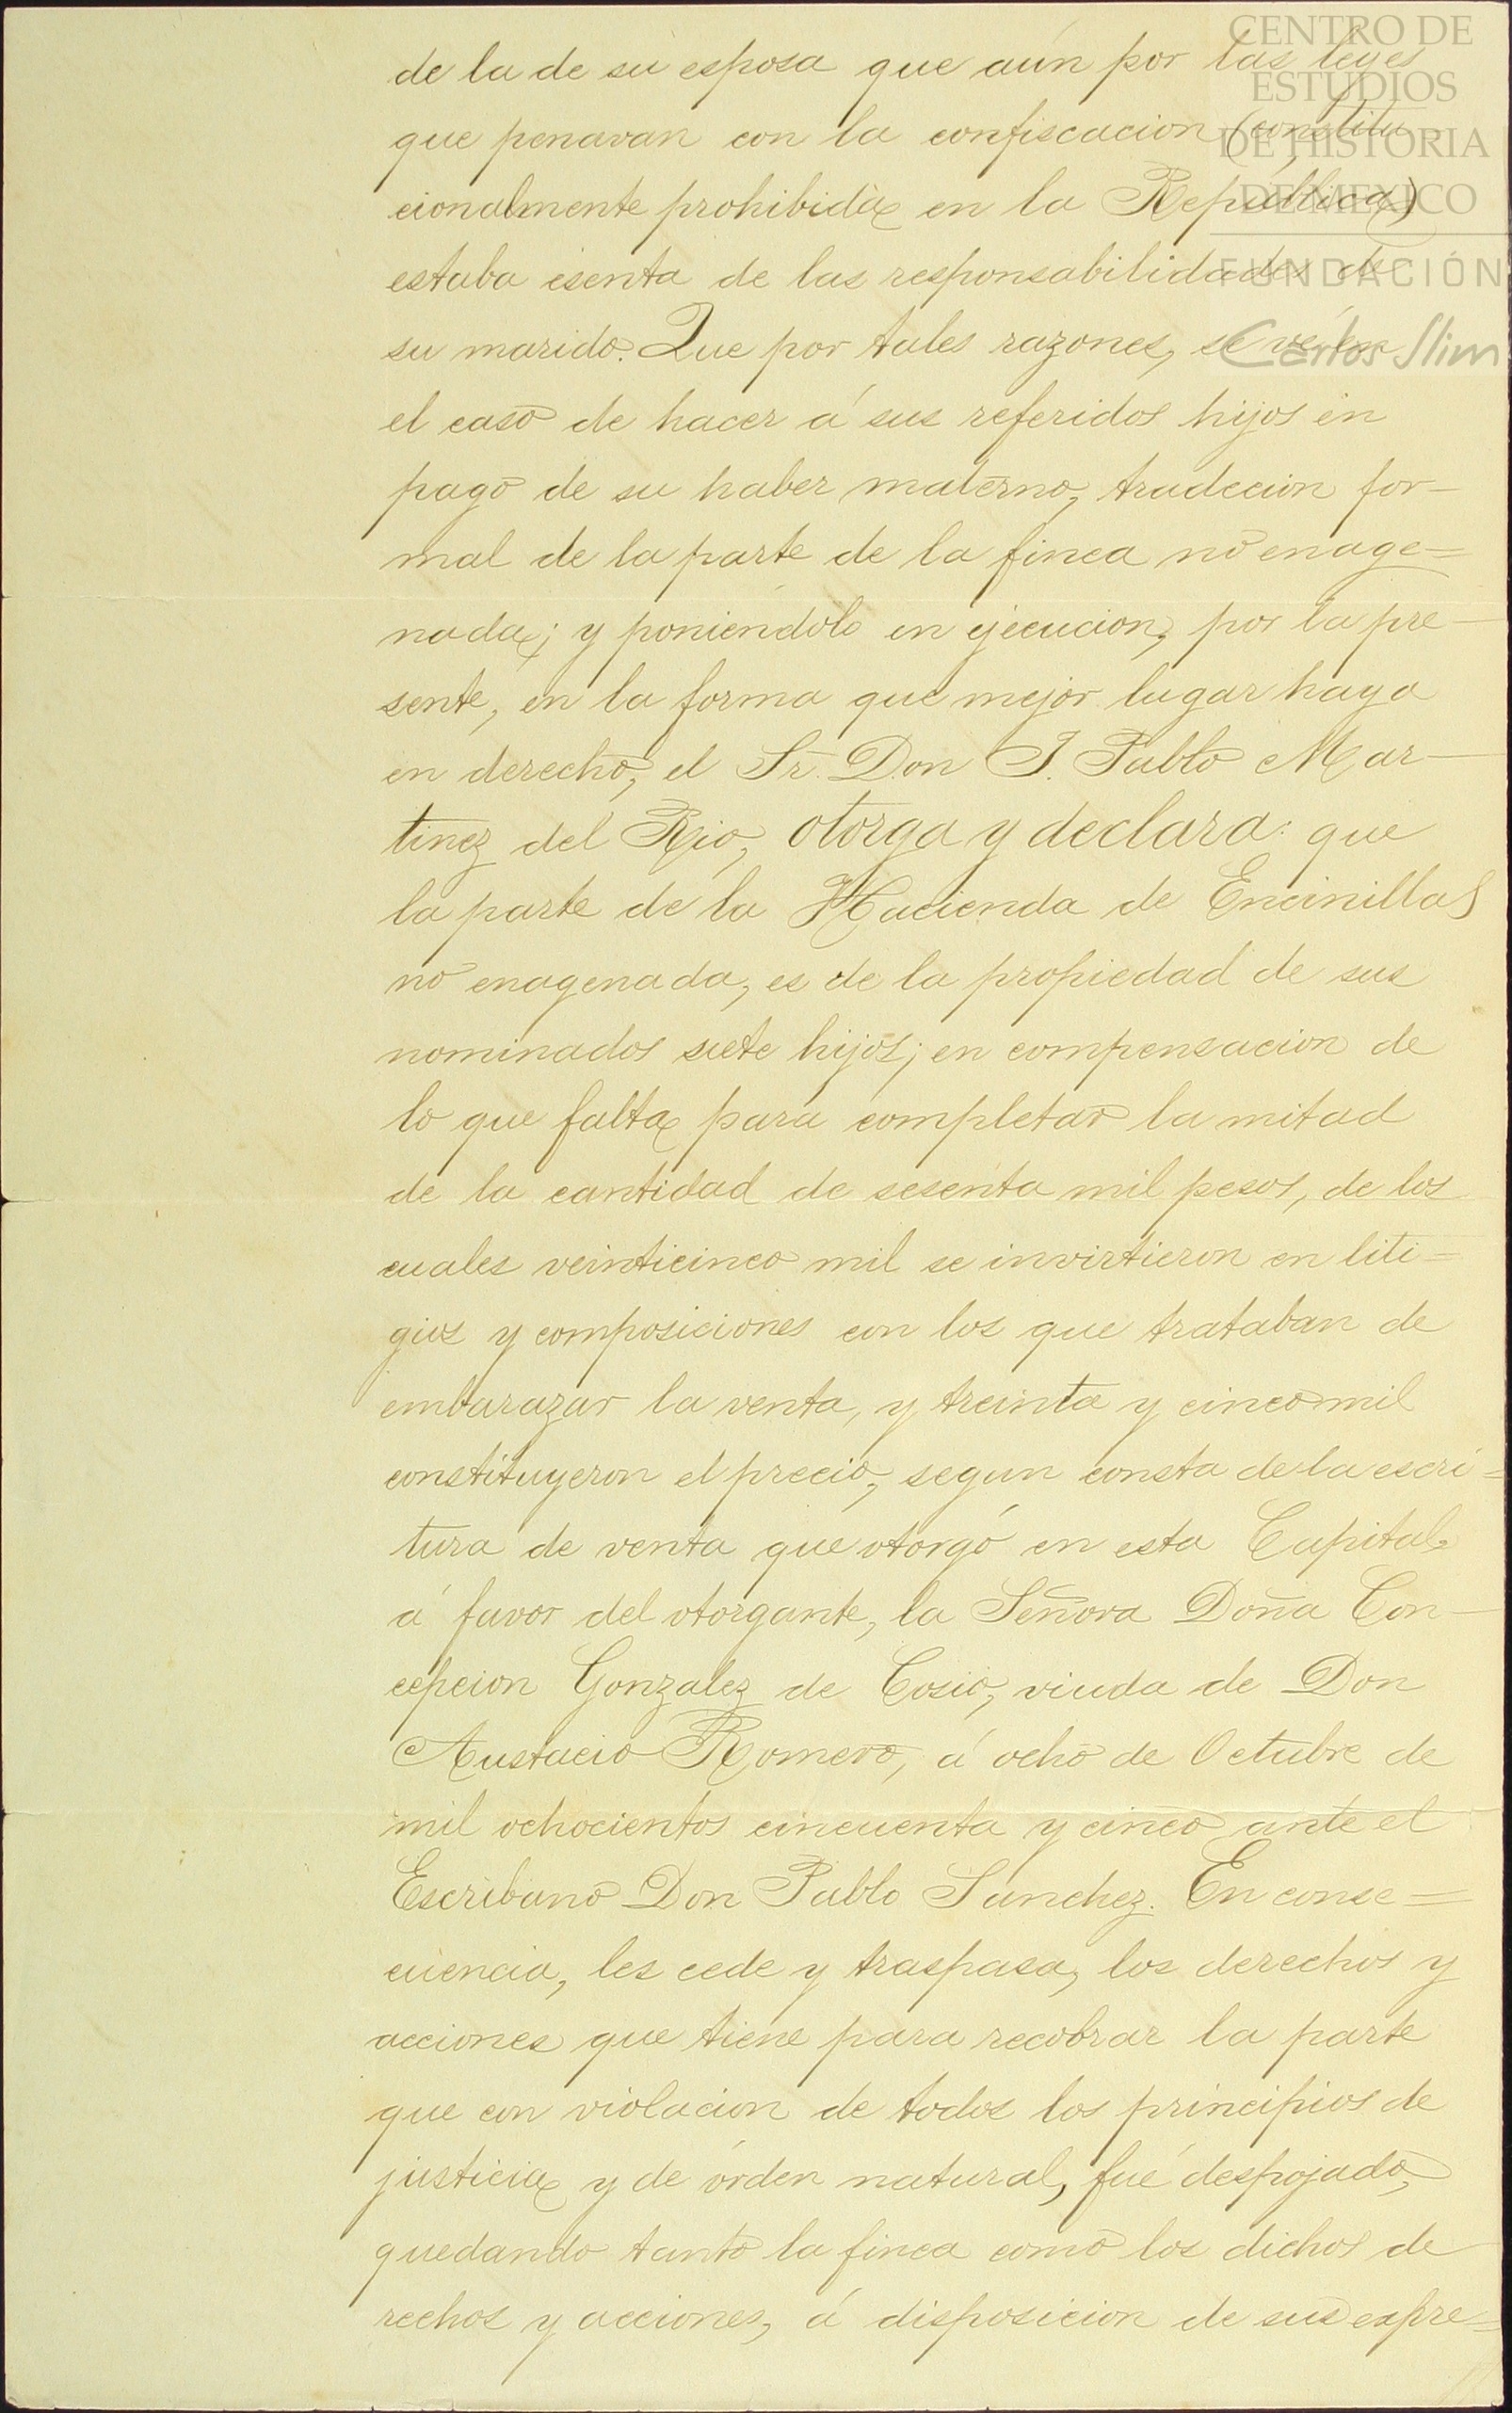 CENTRO DE
ESTUDIOS
DE HISTORIA
DE MEXICO
FUNDACIÓN
Carlos Slim
de la de su esposa que aún por las leyes
que penavan con la confiscacion (constitu
cionalmente prohibida en la República)
estaba esenta de las responsabilidades de
su marido. Que por tales razones, se vé en
el caso de hacer á sus referidos hijos en
pago de su haber materno, tradecion for-
mal de la parte de la finca no enage=
nada; y poniéndolo en ejecucion, por la pre-
sente, en la forma que mejor lugar haya
en derecho, el Sr. Don J. Pablo Mar-
tinez del Rio, otorga y declara: que
la parte de la Hacienda de Encinillas
no enagenada, es de la propiedad de sus
nominados siete hijos; en compensacion de
lo que falta para completar la mitad
de la cantidad de sesenta mil pesos, de los
cuales veinticinco mil se invirtieron en liti=
gios y composiciones con los que trataban de
embarazar la venta, y treinta y cinco mil
constituyeron el precio, segun consta de la escri=
tura de venta que otorgó en esta Capital
á favor del otorgante, la Señora Doña Con-
cepcion Gonzalez de Cosio, viuda de Don
Austacio Romero, á ocho de Octubre de
mil ochocientos cincuenta y cinco ante el
Escribano Don Pablo Sanchez. En conse=
cuencia, les cede y traspasa, los derechos y
acciones que tiene para recobrar la parte
que con violacion de todos los principios de
justicia y de órden natural, fué despojado,
quedando tanto la finca como los dichos de
rechos y acciones, á disposicion de sus expre=